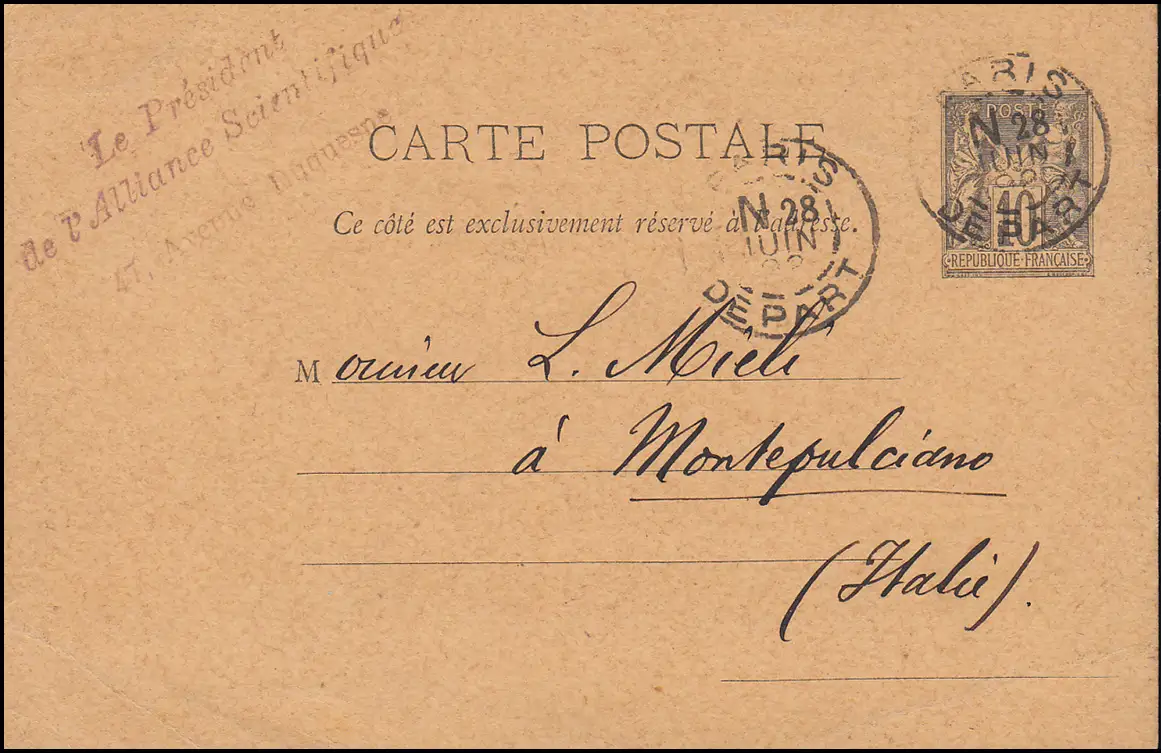 Le Président
de l'Alliance Scientifique
17, Avenue Duquesne
CARTE POSTALE
Ce côté est exclusivement réservé à l'adresse.
POSTES
10
REPUBLIQUE FRANÇAISE
PARIS
N 28
JUIN
DEPART
PARIS
N 28
JUIN
DEPART
Monsieur L. Mieli
à Montepulciano
(Italie).